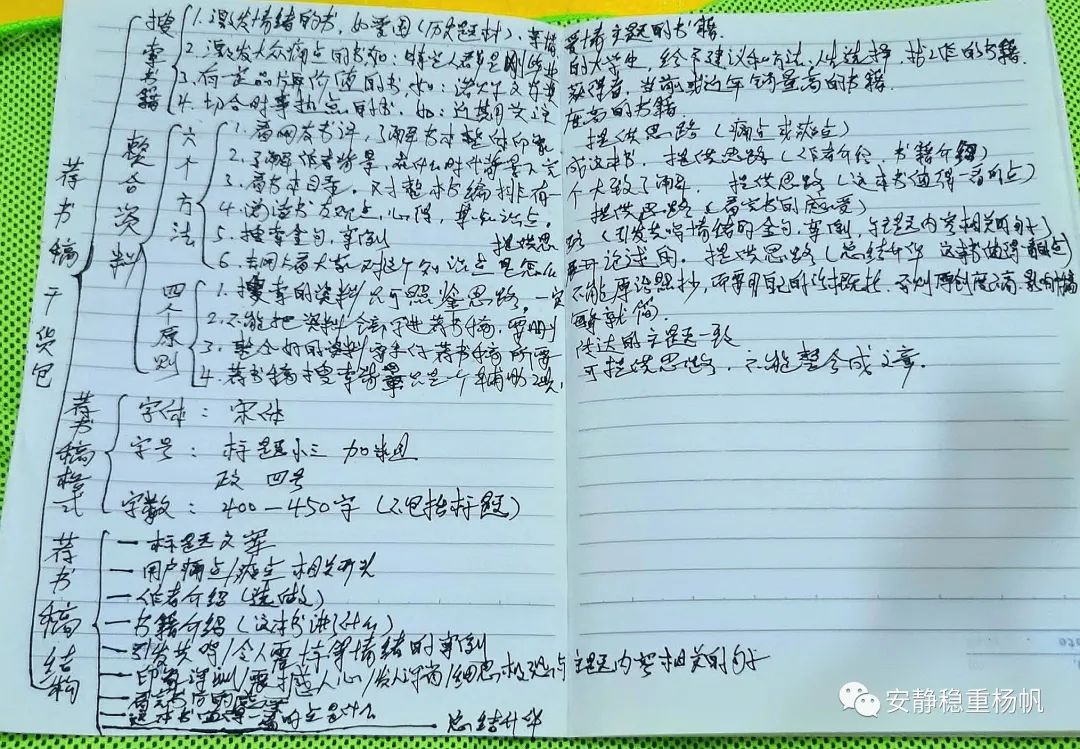 荐书稿干货包
搜集书籍
1. 激发情绪的书，如爱国（历史题材）、亲情爱情主题的书籍.
2. 激发大众痛点的书如：的大学生，给予建议和方法，人生选择，找工作的书籍.
3. 有 价值的书，如： 获得者，当前或近年销量高的书籍.
4. 切合时事热点的书，如：近期关注 的书籍
整合资料
六个方法
1. 看网友书评，了解书本整体印象 提供思路（痛点或爽点）
2. 了解作者背景，在什么时代背景下完成这本书. 提供思路（作者介绍，书籍介绍）
3. 看书本目录，对整本书编排有个大致了解. 提供思路（这本书值得一看的点）
4. 阅读书友观点，心得， 知识点， 提供思路（看完书的感受）
5. 搜索金句，案例 提供思路（引发共鸣情绪的金句，案例，与主题内容相关的句子）
6. 去网上看大家对这个知识点是怎么展开论述的. 提供思路（总结升华 这本书值得看的点）
四个原则
1. 搜索的资料只可照鉴思路，一定不能原没照抄，而要用自己的话概括，否则原创度不高，影响
2. 不能把资料全部写进荐书稿，要删 就简.
3. 整合好的资料要和荐书稿所要传达的主题一致
4. 荐书稿搜索 只是个辅助工具，可提供思路，不能整合成文章.
荐书稿格式
字体：宋体
字号：标题小三 加粗
正 四号
字数：400—450字（不包括标题）
荐书稿结构
一标题文案
一用户痛点/爽点 相关开头
一作者介绍（选做）
一书籍介绍（这本书讲了什么）
一引发共鸣/令人震撼等情绪的案例
一印象深刻/震撼人心/发人深省/细思极恐/与主题内容相关的句子
一看完书后的感受
一这本书值得一看的点是什么 总结升华
安静稳重杨帆